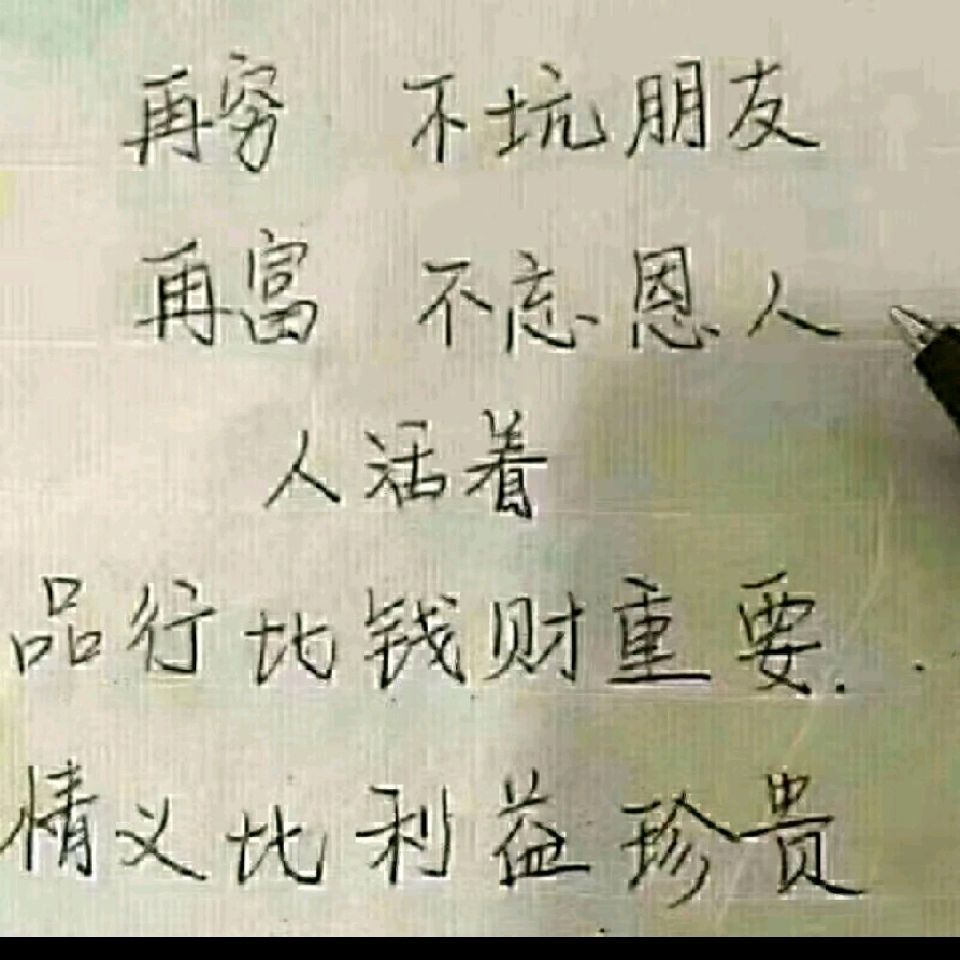 再穷 不坑朋友
再富 不忘恩人
人活着
品行比钱财重要.
情义比利益珍贵